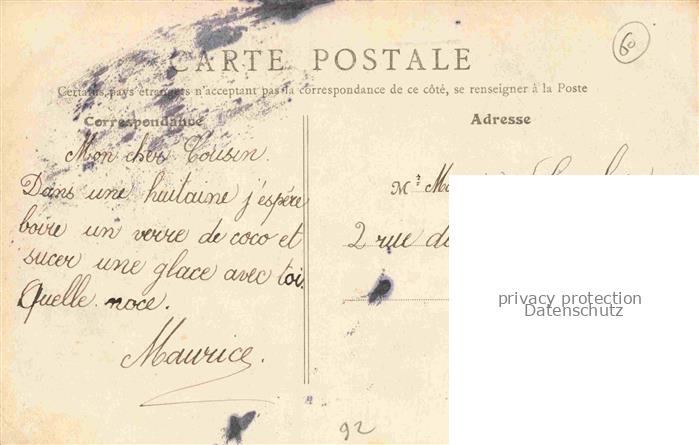 60
CARTE POSTALE
Certains pays étrangers n'acceptant pas la correspondance de ce côté, se renseigner à la Poste
Correspondance
Mon cher Cousin.
Dans une huitaine j'espére
boire un verre de coco et
sucer une glace avec toi.
Quelle noce.
Maurice.
Adresse
Mr
2 rue
privacy protection
Datenschutz
92